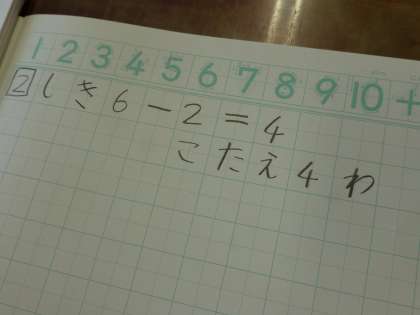 1 2 3 4 5 6 7 8 9 10 +
2 しき 6-2=4
こたえ4わ